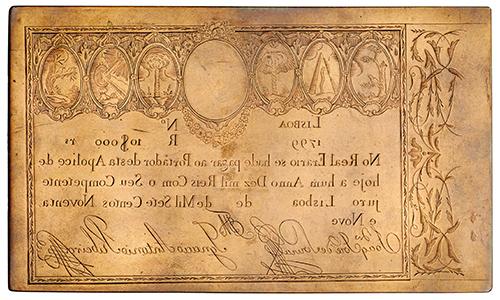 LISBOA Nº
1799 R 10$000 rs
No Real Erario se hade pagar ao Portador desta Apolice de
hoje a hum Anno Dez mil Reis Com o Seu Competente
juro Lisboa de de Mil Sete Centos Noventa
e Nove
Ignacio Antonio Ribeiro